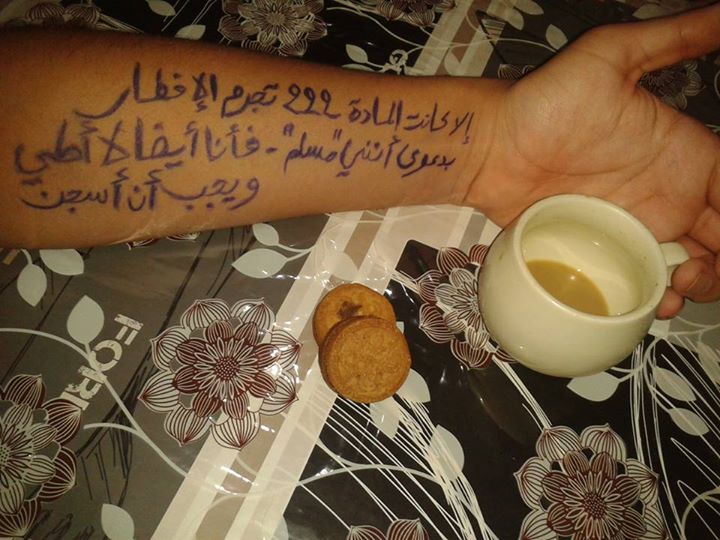 إلا كانت المادة 222 تجرم الإفطار
بدعوى أنني "مسلم" - فأنا أيضا لا أصلي
ويجب أن أسجن
FOR